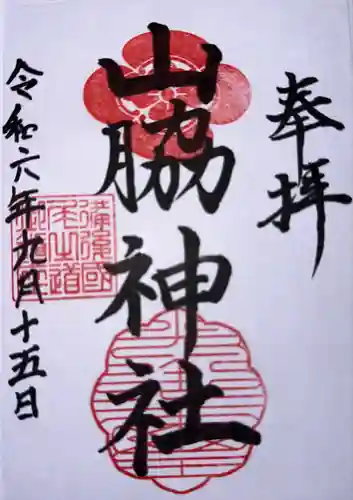 奉拝
山脇神社
令和六年九月十五日